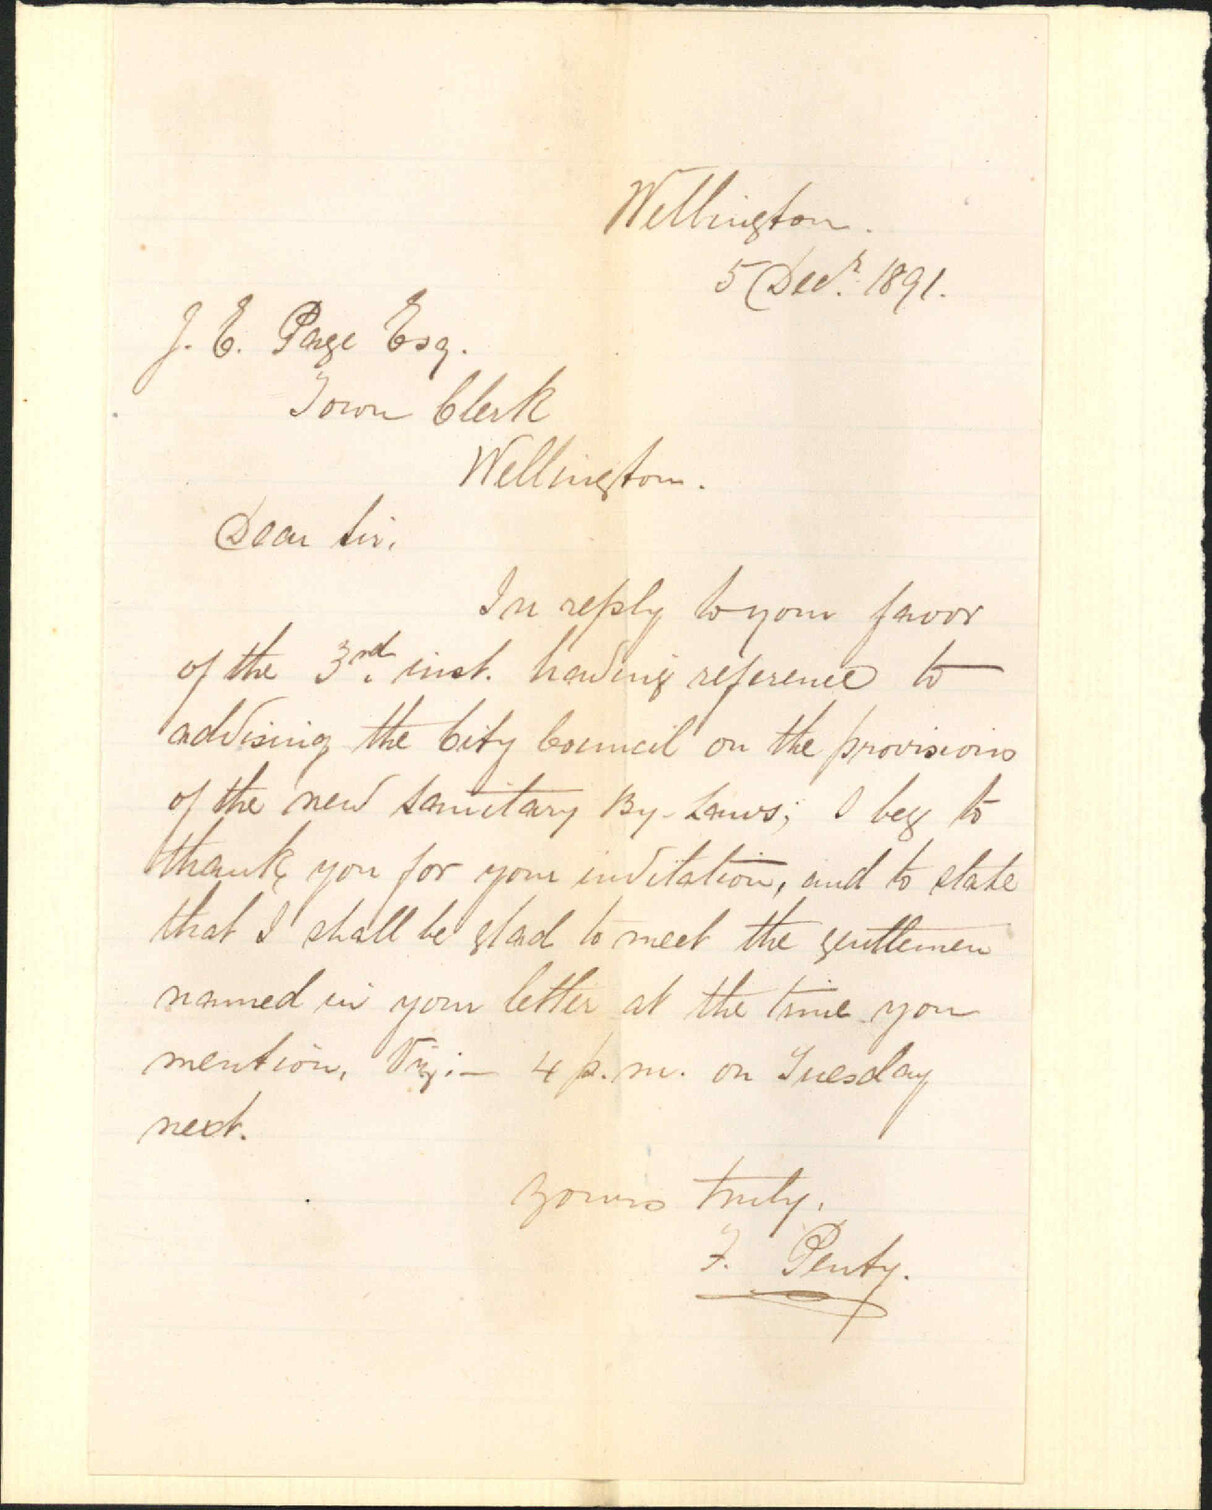 Wellington.
5 Decr. 1891.
J. E. Page Esq.
Town Clerk
Wellington.
Dear Sir,
In reply to your favor
of the 3rd. inst. having reference to
advising the City Council on the provisions
of the new Sanitary By-Laws; I beg to
thank you for your invitation, and to state
that I shall be glad to meet the gentlemen
named in your letter at the time you
mention, Viz:— 4 p.m. on Tuesday
next.
Yours truly,
F. Penty.